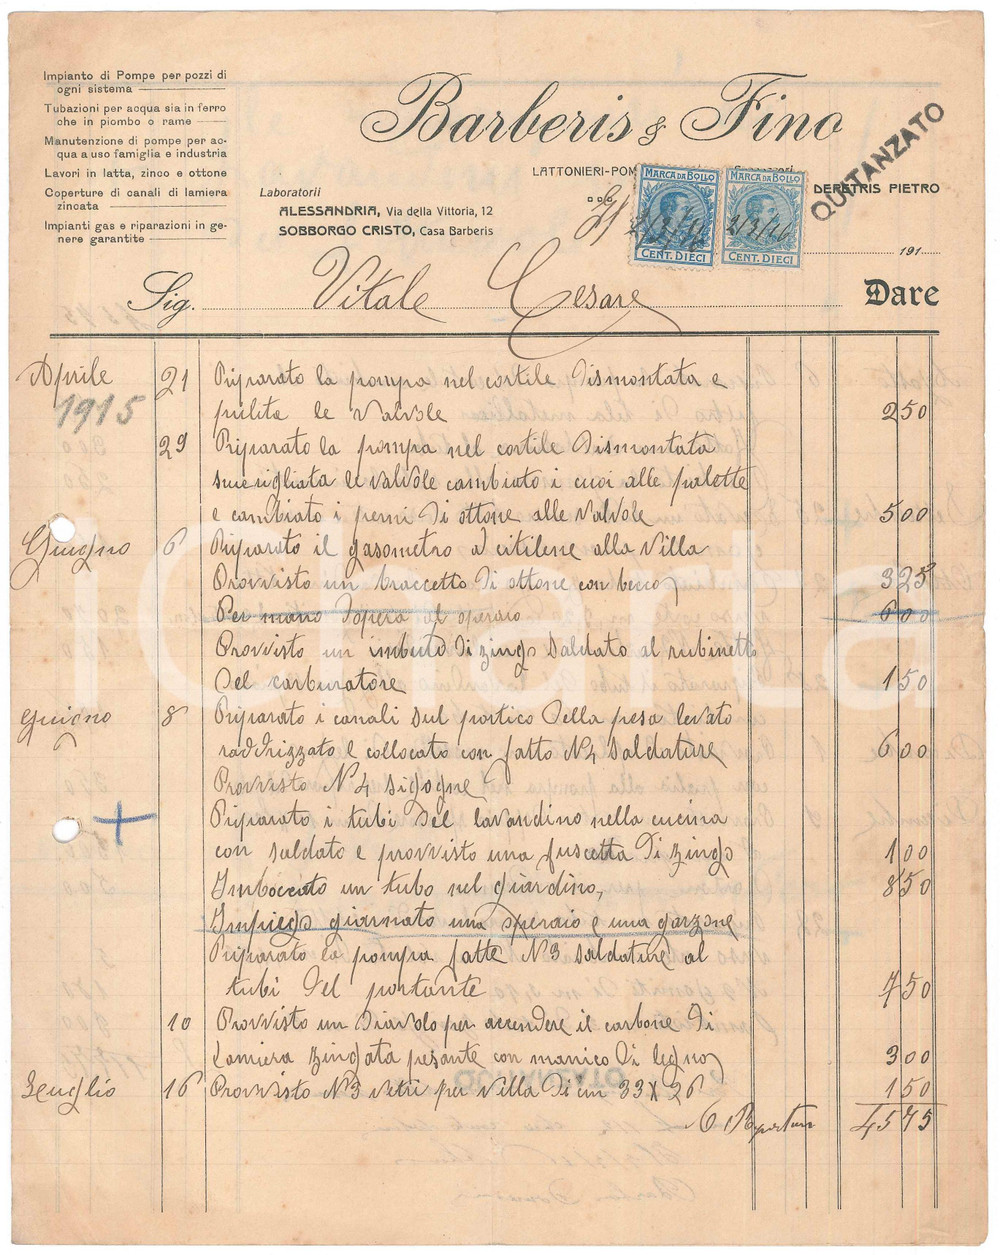 Impianto di Pompe per pozzi di
ogni sistema
Tubazioni per acqua sia in ferro
che in piombo o rame
Manutenzione di pompe per ac-
qua a uso famiglia e industria
Lavori in latta, zinco e ottone
Coperture di canali di lamiera
zincata
Impianti gas e riparizioni in ge-
nere garantite
Barberis & Fino
LATTONIERI-POM
QUITANZATO
DEPETRIS PIETRO
Laboratorii
ALESSANDRIA, Via della Vittoria, 12
SOBBORGO CRISTO, Casa Barberis
MARCA DA BOLLO
CENT. DIECI
MARCA DA BOLLO
2/3/16
CENT. DIECI
191
Sig. Vitale Cesare Dare
Aprile 21 Riparato la pompa nel cortile Dismontata e
1915 pulite le valvole 250
29 Riparato la pompa nel cortile Dismontata
smerigliata le valvole cambiato i cuoi alle palotte
e cambiato i perni di ottone alle valvole 500
Giugno 6 Riparato il gasometro al citilene alla villa
Provvisto un braccetto di ottone con becco 325
Per mano d'opera al operaio 600
Provvisto un imbuto di zingo saldato al rubinetto
del carburatore 150
giugno 8 Riparato i canali sul portico della pesa levato
raddrizzato e collocato con fatto N 4 saldature 600
Provvisto N 4 sigogne
+ Riparato i tubi del lavandino nella cucina
con saldato e provvisto una fuscetta di zingo 100
Imboccato un tubo nel giardino, 850
Impiego giornato una operaio e una garzone
Riparato la pompa fatte N 3 saldature al
tubi del portante 750
10 Provvisto un diavolo per accendere il carbone di
Lamiera zingata pesante con manico di legno 300
Luglio 16 Provvisto N 3 vetri per villa di cm 33 X 26 150
4575
iCharta